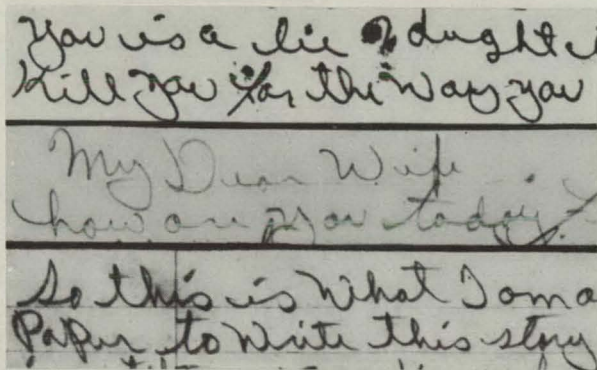 you is a lie I dught
Kill you for the way you
My Dear Wife
how are you today
So this is What I am a
Paper to Write this story